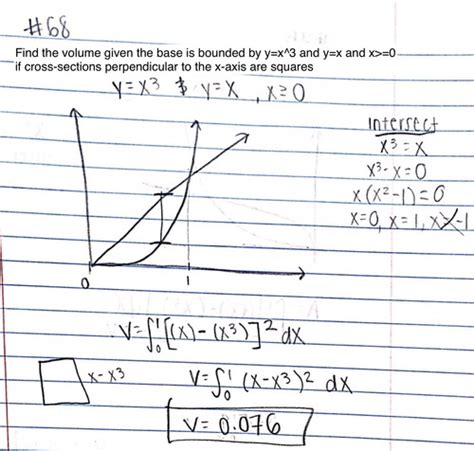 #68
Find the volume given the base is bounded by y=x^3 and y=x and x>=0
if cross-sections perpendicular to the x-axis are squares
y=x³ & y=x, x≥0
Intersect
x³=x
x³-x=0
x(x²-1)=0
x=0, x=1, x≠-1
0 1
V=∫₀¹[(x)-(x³)]² dx
x-x³
V=∫₀¹ (x-x³)² dx
V= 0.076